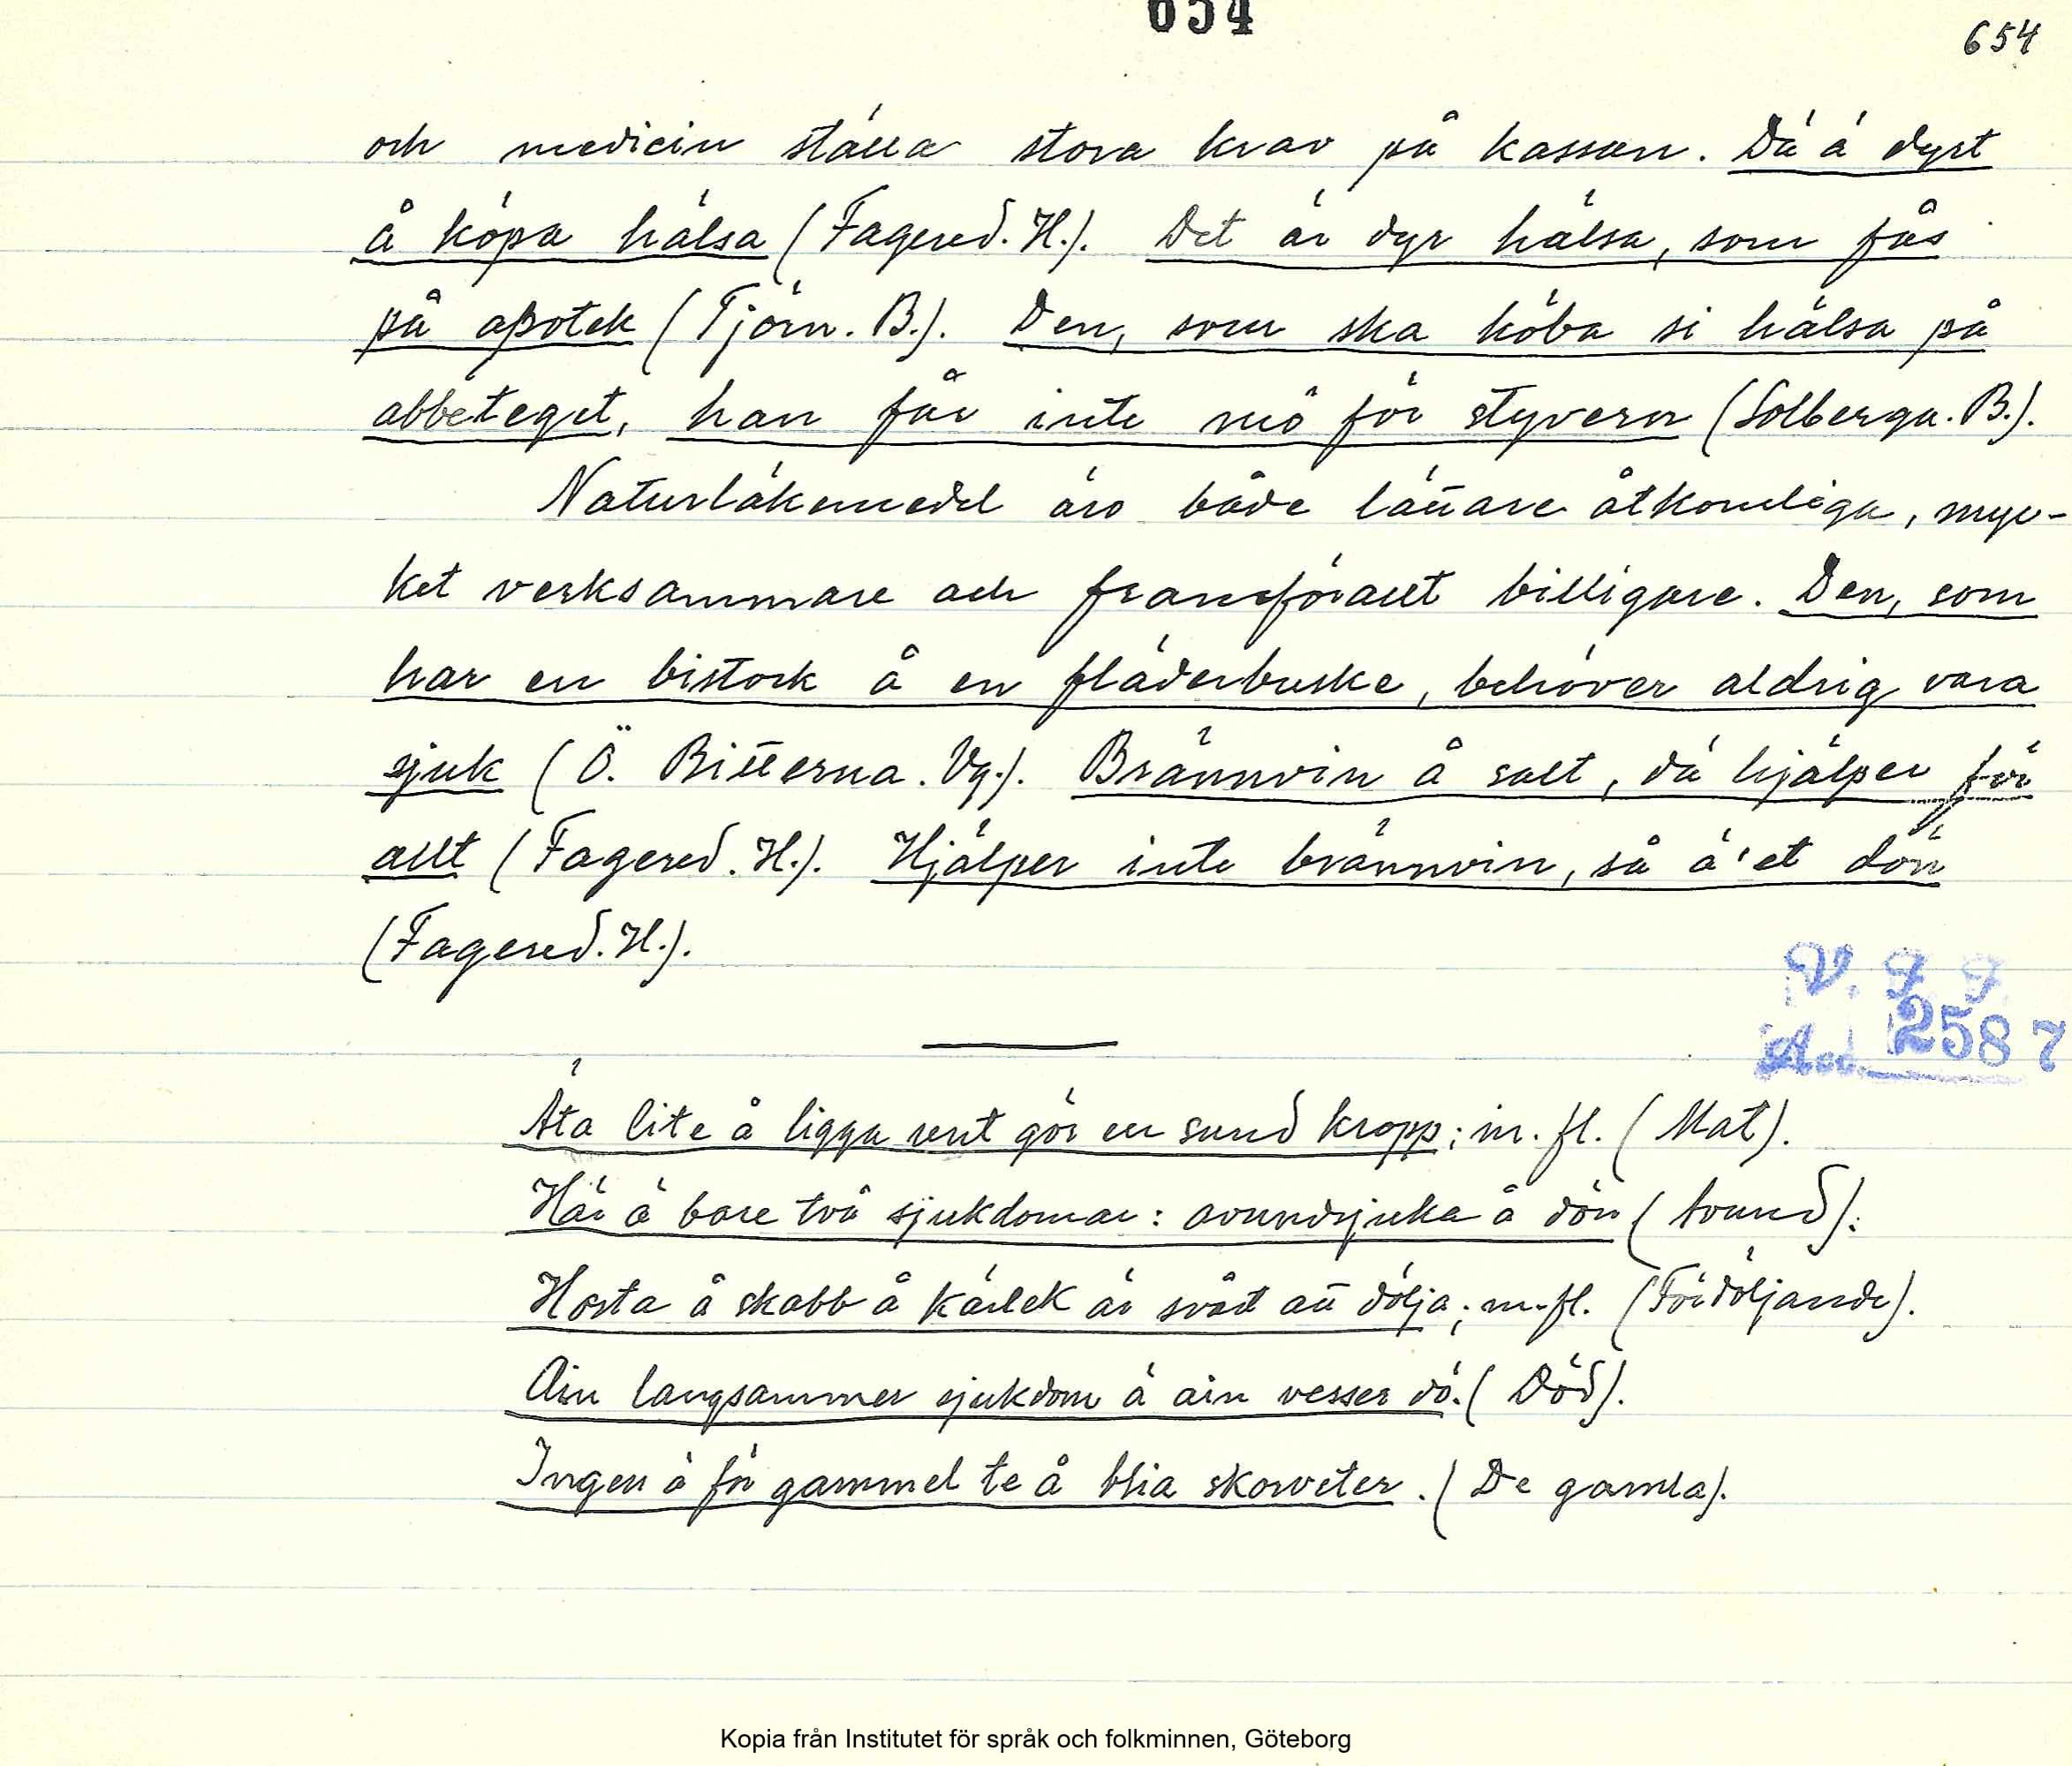 654
654
och medicin ställa stora krav på kassan. Dä ä dyrt
å köpa hälsa (Fagered. H.). Det är dyr hälsa, som fås
på apotek (Tjörn. B.). Den, som ska köba si hälsa på
abbeteget, han får inte mö för styvern (Solberga. B.).
Naturläkemedel äro både lättare åtkomliga, myc-
ket verksammare och framförallt billigare. Den, som
har en bistock å en fläderbuske, behöver aldrig vara
sjuk (Ö. Bitterna. Vg.). Brännvin å salt, dä hjälper för
allt (Fagered. H.). Hjälper inte brännvin, så ä'et dön
(Fagered. H.).
V. F F
Acc. 2587
Äta lite å ligga rent gör en sund kropp; m. fl. (Mat).
Här ä bare två sjukdomar: avundsjuka å dön (Avund).
Hosta å skabb å kärlek är svårt att dölja; m. fl. (Fördöljande).
Ain langsammer sjukdom ä ain vesser dö. (Död).
Ingen ä för gammel te å blia skorveter. (De gamla).
Kopia från Institutet för språk och folkminnen, Göteborg